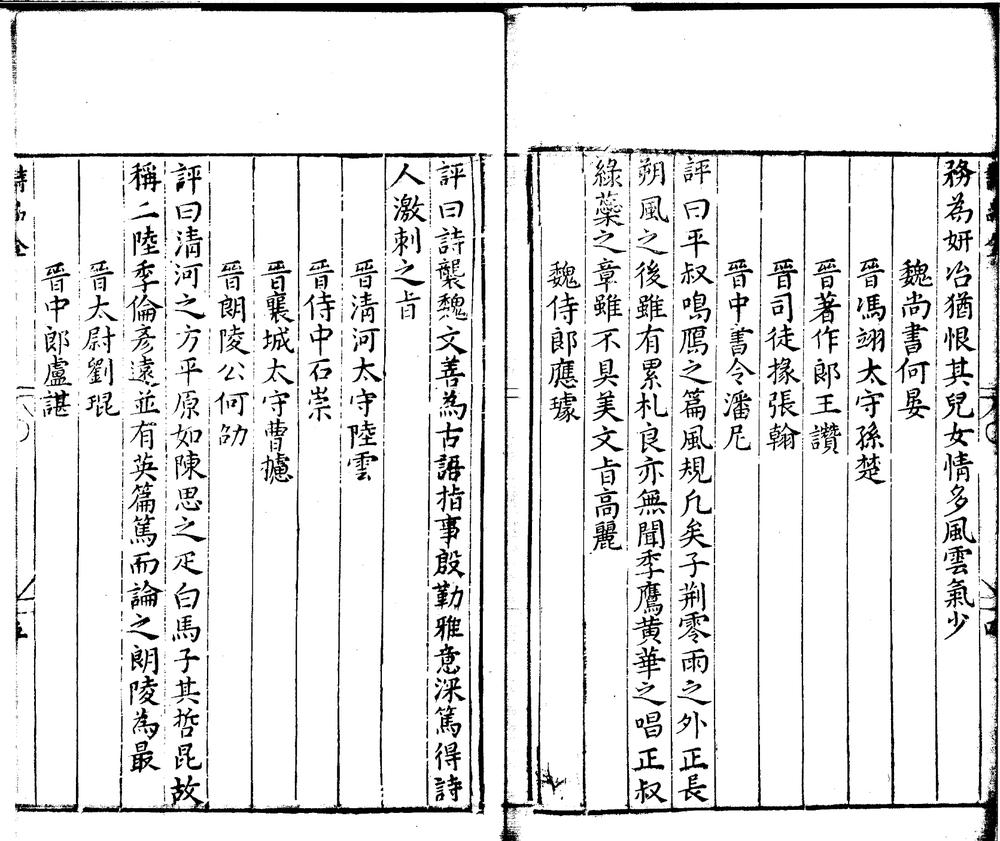 務為妍冶猶恨其兒女情多風雲氣少
魏尚書何晏
晉馮翊太守孫楚
晉著作郎王讚
晉司徒掾張翰
晉中書令潘尼
評曰平叔鳴鴈之篇風規凡矣子荆零雨之外正長
朔風之後雖有累札良亦無聞季鷹黄華之唱正叔
綠蘩之章雖不具美文旨高麗
魏侍郎應璩
評曰詩襲魏文善為古語指事殷勤雅意深篤得詩
人激刺之旨
晉清河太守陸雲
晉侍中石崇
晉襄城太守曹攄
晉朗陵公何劭
評曰清河之方平原如陳思之疋白馬子其哲昆故
稱二陸季倫彥遠並有英篇篤而論之朗陵為最
晉太尉劉琨
晉中郎盧諶